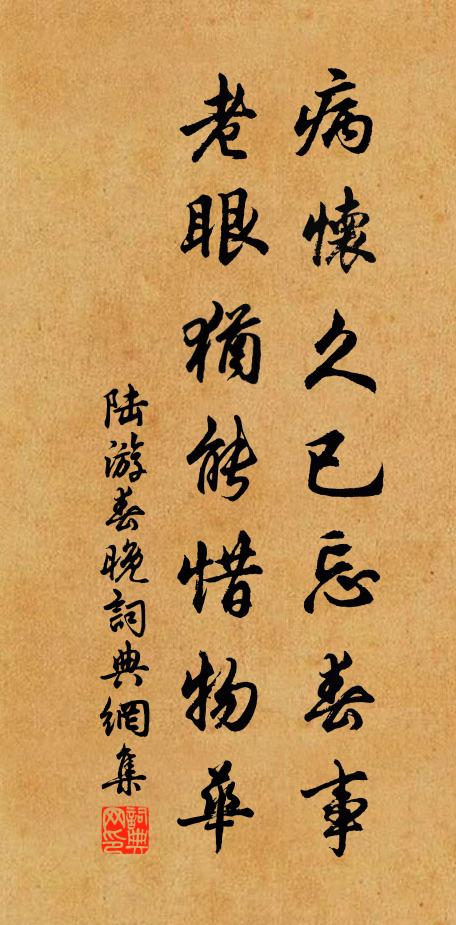 病懷久已忘春事
老眼猶能惜物華
陸游春晚詞典網集
詞典网印